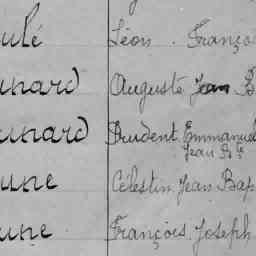 ulé Léon. Franço
unard Auguste Jean B
unard Prudent Emmanuel
Jean Bte
une Célestin Jean Bap
une François Joseph